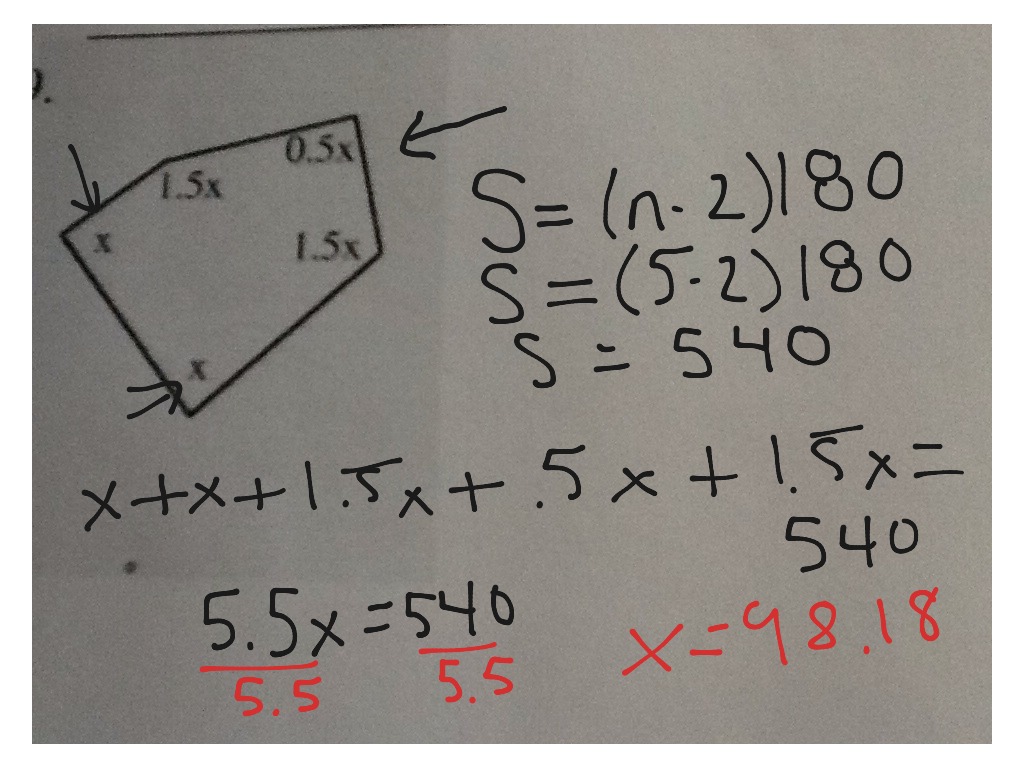 ).
0.5x
1.5x
x
1.5x
x
S = (n - 2)180
S = (5 - 2)180
S = 540
x + x + 1.5x + .5x + 1.5x =
540
5.5x = 540
5.5 5.5
x = 98.18